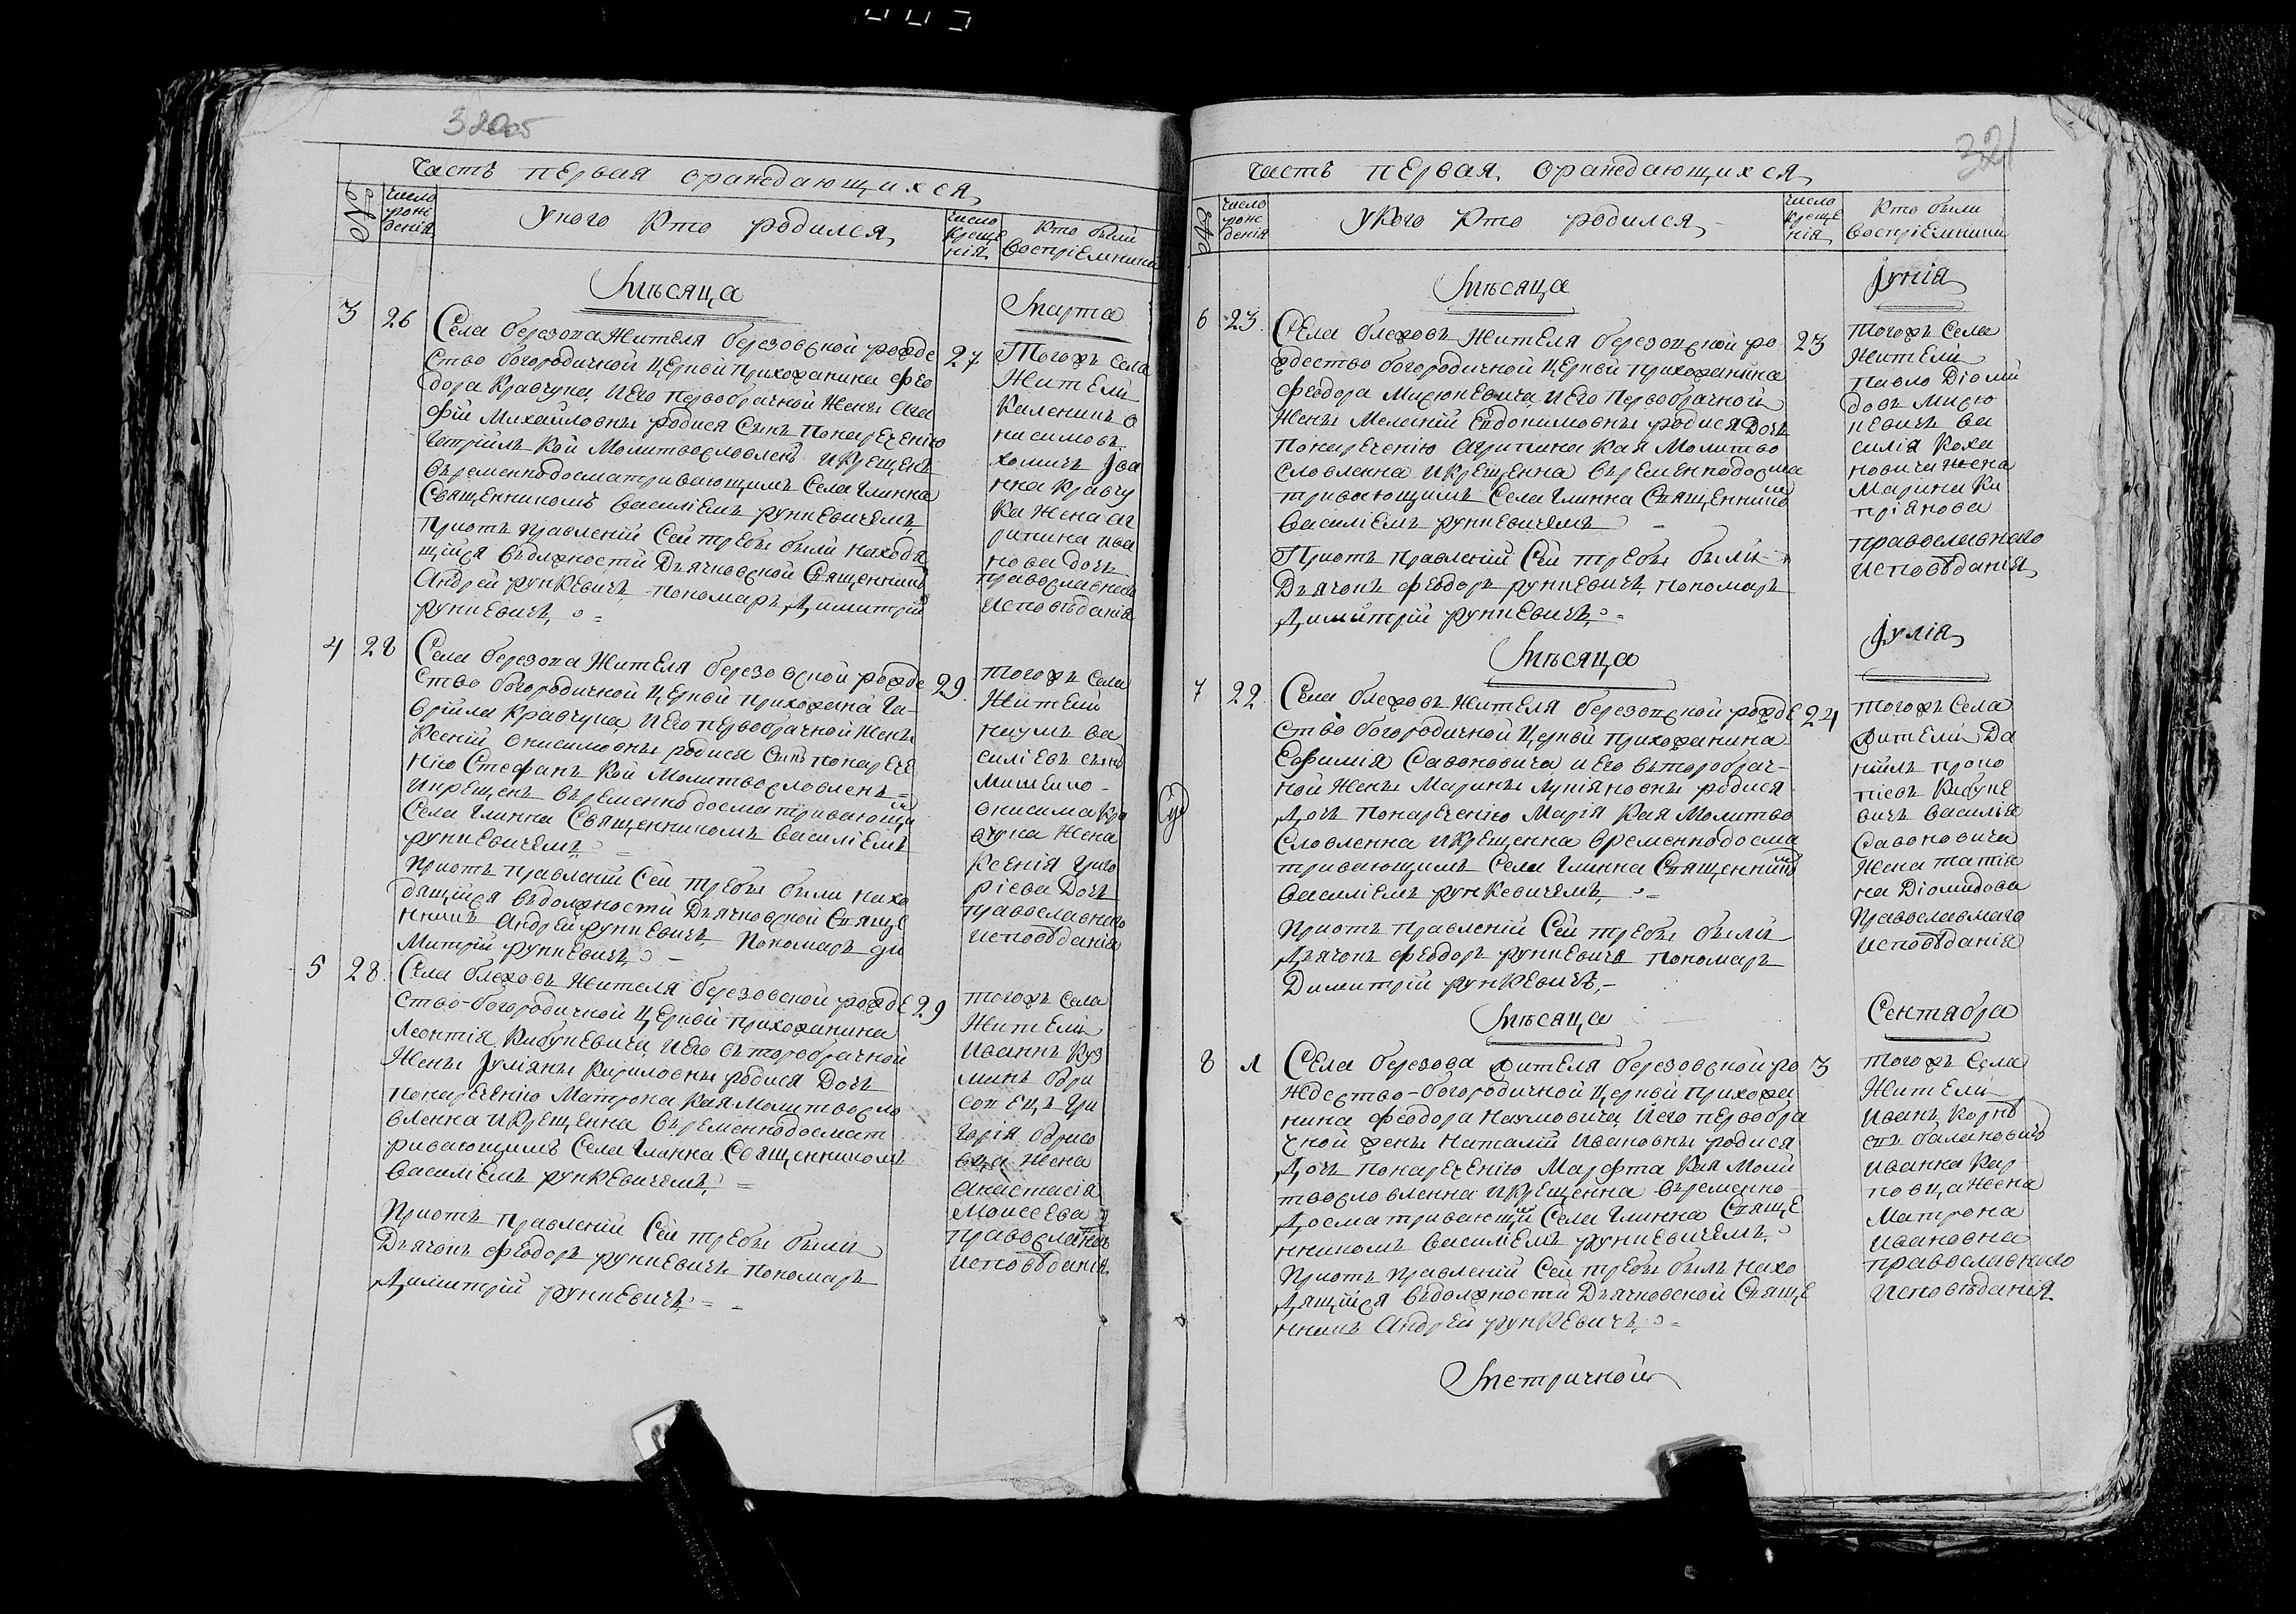 321
часть первая ораждающихся
№
число
рож
дения
у кого кто родился
число
креще
нія
кто были
воспріемники
Мѣсяца
Марта
3
26
Села березова жителя березовской рожде
ство богородичной церкви прихожанина Фео
дора Кравчука и его первобрачной жены Ага
фіи Михайловны родися сынъ по наречению
кой молитвословленъ и крещенъ
временно досматривающимъ села глинна
священникомъ василіемъ рункевичемъ
При отправленій сей требы были находя
щійся въ должности дьячковской священникъ
Андрей рункевичъ пономаръ Димитрій
рункевичъ
27
Тогожъ села
жители
Каленикъ о
нисимовъ
хомичъ Ива
нка кравчу
ка жена аг
рипина ива
нова дочь
православнаго
исповѣданія
4
28
Села березова жителя березовской рожде
ство богородичной церкви прихожана Га
вріила Кравчука и его первобрачной жены
Ксеніи онисимовны родися сынъ по нарече
нію Стефанъ кой молитвословленъ
и крещенъ временно досматривающи
села глинна священникомъ василіемъ
рункевичемъ
При отправленіи сей требы были нахо
дящійся въ должности дьячковской свяще
нникъ Андрей рункевичъ Пономаръ Ди
митрій рункевичъ
29
тогожъ села
жители
наумъ ва
силіевъ сынъ
онисима кра
вчука жена
Ксенія григо
ріева дочь
православнаго
исповѣданія
5
28
Села блежовъ жителя березовской рожде
ство-богородичной церкви прихожанина
Леонтія Кибукевича и его второбрачной
жены Іуліяны Кириловны родися дочь
по наречению Матрона кая молитвосло
вленна и крещенна временно досмат
ривающимъ села глинна священникомъ
василіемъ рункевичемъ
При отправленіи сей требы были
Дьячокъ феодоръ рункевичъ пономаръ
Димитрій рункевичъ
29
тогожъ села
жители
иваннъ куз
минъ бри
гри
горія
жена
анастасія
Моисеева
православнаго
исповѣданія
часть первая ораждающихся
№
число
рож
денія
у кого кто родился
число
креще
нія
кто были
воспріемники
Мѣсяца
Іунія
6
23
Села блежовъ жителя березовской ро
ждество богородичной церкви прихожанина
феодора Мисюкевича и его первобрачной
жены Меланіи Евдокимовны родися дочь
по наречению агрипина кая молитво
словленна и крещенна временно досма
тривающимъ села глинна священнико
василіемъ рункевичемъ
При отправленіи сей требы были
Дьячокъ феодоръ рункевичъ пономаръ
Димитрій рункевичъ
23
тогожъ села
жители
павло Діоми
довъ мисю
кевичъ ва
силія коха
новича жена
Марина Ки
пріянова
православнаго
исповѣданія
Мѣсяца
Іулія
7
22
Села блежовъ жителя березовской рожде
ство богородичной церкви прихожанина
Ефимія Савоновича и его второбрач-
ной жены Марины лукіяновны родися
дочь по наречению Марія кая молитво
словленна и крещенна временно досма
тривающимъ села глинна священнико
василіемъ рункевичемъ
При отправленій сей требы были
дьячокъ феодоръ рункевичъ пономаръ
Димитрій рункевичъ
24
тогожъ села
жители Да
ніилъ проко
піевъ Кибуке
вичъ василія
Савоновича
жена татія
на Діомидова
православнаго
исповѣданія
Мѣсяца
Сентабра
8
Села березова жителя березовской ро
ждество-богородичной церкви прихожа
нина феодора Наумовича и его первобра
чной жены Наталіи Ивановны родися
дочь по наречению Марфта кая моли
твословленна и крещенна временно
досматривающи села глинна свяще
нникомъ василіемъ рункевичемъ
При отправленіи сей требы былъ нахо
дящійся въ должности дьячковской свяще
нникъ Андрей рункевичъ
3
тогожъ села
жители
иванъ
иванка кар
повца жена
Матрона
ивановна
православнаго
исповѣданія
Метричной